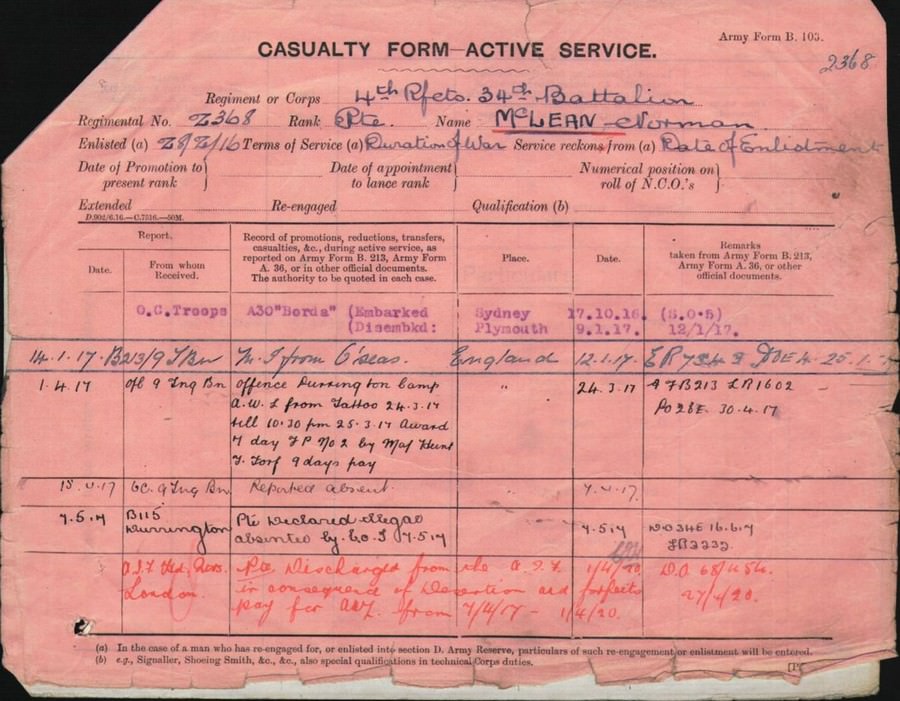 Army Form B. 103.
CASUALTY FORM—ACTIVE SERVICE.
2368
Regiment or Corps 4th Rfcts. 34th Battalion
Regimental No. 2368 Rank Pte. Name McLEAN Norman
Enlisted (a) 28/2/16 Terms of Service (a) Duration of War Service reckons from (a) Date of Enlistment
Date of Promotion to present rank Date of appointment to lance rank Numerical position on roll of N.C.O.'s
Extended Re-engaged Qualification (b)
D.902/6.16.—C.7516.—50M.
Report. Record of promotions, reductions, transfers, casualties, &c., during active service, as reported on Army Form B. 213, Army Form A. 36, or in other official documents. The authority to be quoted in each case. Place. Date. Remarks taken from Army Form B. 213, Army Form A. 36, or other official documents.
Date. From whom Received.
O.C.Troops A30"Borda" (Embarked Sydney 17.10.16. (S.O.5)
(Disembkd: Plymouth 9.1.17. 12/1/17.
14.1.17. B213/9 T Bn M. I from O'seas. England 12.1.17. 25.1.
1.4.17 9 Tng Bn offence Durrington Camp " 24.3.17 A F B213 LR1602
A.W.L from Tattoo 24.3.17 DO 28E. 30.4.17
till 10.30 pm 25.3.17 Award
7 day F P No 2 by Maj Hunt
T. Forf 9 days pay
15.4.17 OC. 9 Tng Bn. Reported absent. 7.4.17.
7.5.17 B115 Pte Declared illegal 7.5.17 DO34E 16.6.17
Durrington absentee by. Co. I 7.5.17 LB2232.
A.I.F Hed. Qrs. Pte Discharged from the A.I.F 1/4/20 D.O. 68/
London. in consequence of Desertion and forfeits 27/4/20.
pay for AWL from 7/4/17 - 1/4/20.
(a) In the case of a man who has re-engaged for, or enlisted into section D. Army Reserve, particulars of such re-engagement or enlistment will be entered.
(b) e.g., Signaller, Shoeing Smith, &c., &c., also special qualifications in technical Corps duties.